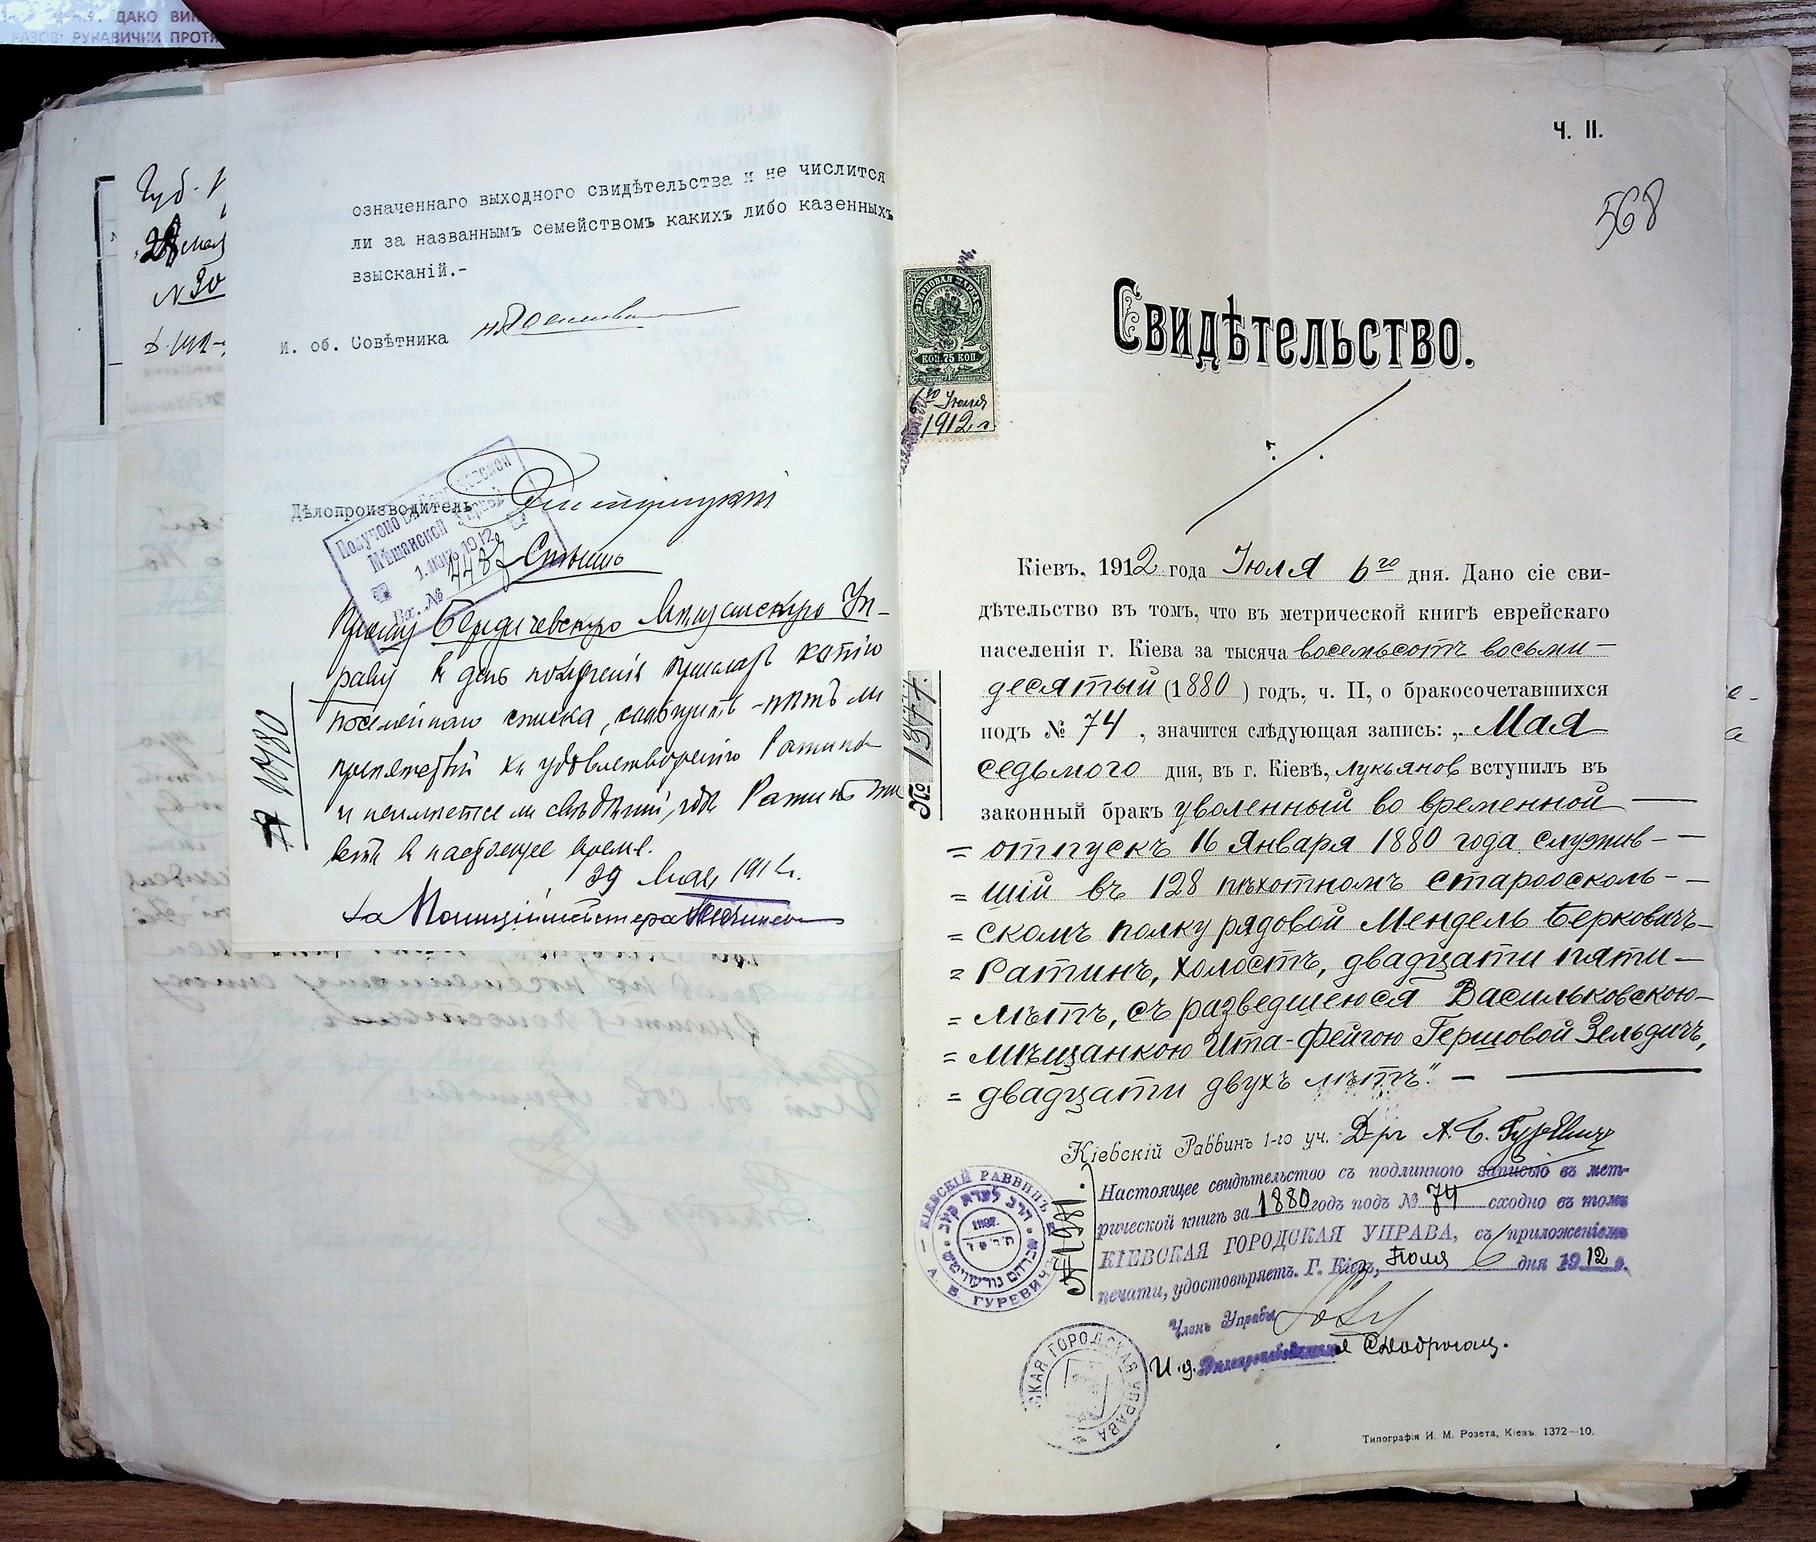 ДАКО
РУКАВИЧКИ ПРОТЯ
Губ.
28 мая
N 30
означеннаго выходного свидѣтельства и не числится
ли за названнымъ семействомъ какихъ либо казенныхъ
взысканій.-
И. об. Совѣтника
Дѣлопроизводитель
Получено
Мѣщанской Управой
1912
Вх. №
Прошу Бердичевскую Мѣщанскую Уп-
раву въ день полученія прислать копію
посемейнаго списка, сообщить - нѣтъ ли
препятствій къ удовлетворенію Ратина
и не имѣется ли свѣдѣній, гдѣ Ратинъ жи
ветъ въ настоящее время.
29 Мая 1912 г.
За Полиціймейстера
10780
Ч. II.
568
Свидѣтельство.
КОП. 75 КОП.
6го Іюля
1912 г
№ 1977.
Кіевъ, 1912 года Іюля 6го дня. Дано сіе сви-
дѣтельство въ томъ, что въ метрической книгѣ еврейскаго
населенія г. Кіева за тысяча восемьсотъ восьми-
десятый (1880) годъ, ч. II, о бракосочетавшихся
подъ № 74, значится слѣдующая запись: „Мая
седьмого дня, въ г. Кіевѣ, лукьянов вступилъ въ
законный бракъ уволенный во временной
= отпускъ 16 Января 1880 года служив-
= шій въ 128 пѣхотномъ староосколь-
= скомъ полку рядовой Мендель Берковичъ
= Ратинъ, холостъ, двадцати пяти
= лѣтъ, съ разведшеюся Васильковскою
= мѣщанкою Ита-Фейгою Гершовой Зельдичъ,
= двадцати двухъ лѣтъ". —
Кіевскій Раввинъ 1-го уч. Д-ръ А. Б. Гуревичъ
Настоящее свидѣтельство съ подлинною записью въ мет-
рической книгѣ за 1880 годъ подъ № 74 сходно въ томъ
КІЕВСКАЯ ГОРОДСКАЯ УПРАВА, съ приложеніемъ
печати, удостовѣряетъ. Г. Кіевъ, Іюля 6 дня 1912 г.
Членъ Управы
И. д. Дѣлопроизводителя
КІЕВСКІЙ РАВВИНЪ
А. Б. ГУРЕВИЧЪ
1907
СКАЯ ГОРОДСКАЯ УПРАВА
Типографія И. М. Розета, Кіевъ. 1372—10.